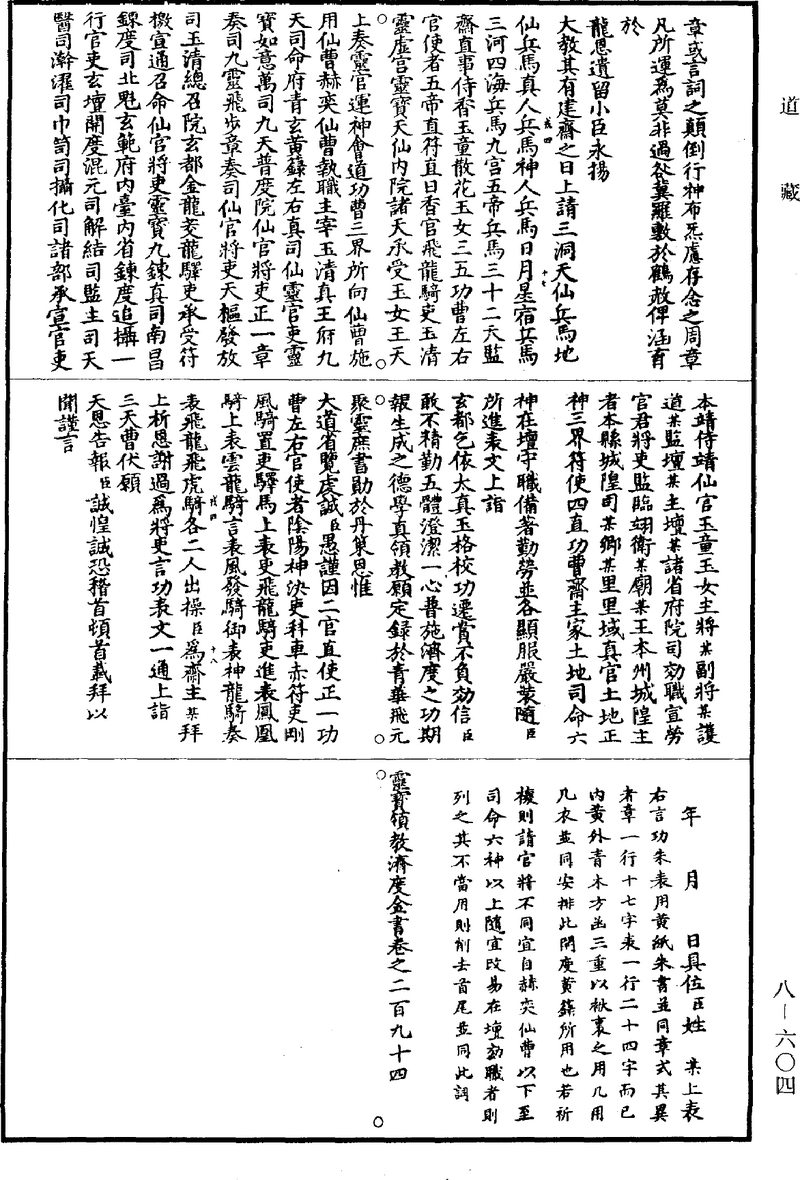 道藏
章或言詞之顛倒行神布炁慮存念之周章
凡所運爲莫非過咎冀羅敷於鶴赦俾涵育
於
龍恩遺留小臣永揚
大教其有建齋之日上請三洞天仙兵馬地
仙兵馬真人兵馬神人兵馬日月星宿兵馬
三河四海兵馬九宮五帝兵馬三十二天監
齋直事侍香玉童散花玉女三五功曹左右
官使者五帝直符直日香官飛龍騎吏玉清
靈虛宮靈寶天仙內院諸天承受玉女王天
上奏靈官運神會道功曹三界所向仙曹施
用仙曹赫奕仙曹執職主宰玉清真王府九
天司命府青玄黃籙左右真司仙靈官吏靈
寶如意萬司九天普度院仙官將吏正一章
奏司九靈飛步章奏司仙官將吏天樞發放
司玉清總召院玄都金龍茭龍驛吏承受符
檄宣通召命仙官將吏靈寶九鍊真司南昌
鍊度司北魁玄範府內臺內省鍊度追攝一
行官吏玄壇開度混元司解結司監主司天
醫司澣濯司巾笥司攝化司諸部承宣官吏
本靖侍靖仙官玉童玉女主將某副將某護
道某監壇某主壇某諸省府院司効職宣勞
官君將吏監臨翊衛某廟某王本州城隍主
者本縣城隍司某鄉某里里域真官土地正
神三界符使四直功曹齋主家土地司命六
神在壇守職備著勤勞並各顯服嚴裝隨臣
所進表文上詣
玄都乞依太真玉格校功遷賞不負効信臣
敢不精勤五體澄潔一心普施濟度之功期
報生成之德學真領教願定録於青華飛元
聚靈庶書勛於丹策恩惟
大道省覽虔誠臣愚謹因二官直使正一功
曹左右官使者陰陽神決吏科車赤符吏剛
風騎置吏驛馬上表吏飛龍騎吏進表鳳凰
騎上表雲龍騎言表風發騎御表神龍騎奏
表飛龍飛虎騎各二人出操臣爲齋主某拜
上祈恩謝過爲將吏言功表文一通上詣
三天曹伏願
天恩告報臣誠惶誠恐稽首頓首載拜以
聞謹言
年月日具位臣姓某上表
右言功朱表用黃紙朱書並同章式其異
者章一行十七字表一行二十四字而已
內黃外青木方函三重以袱裹之用几用
几衣並同安排此開度黃籙所用也若祈
禳則請官將不同宜自赫奕仙曹以下至
司命六神以上隨宜改易在壇効職者則
列之其不當用則削去首尾並同此詞
靈寶領教濟度金書卷之二百九十四
八—六〇四